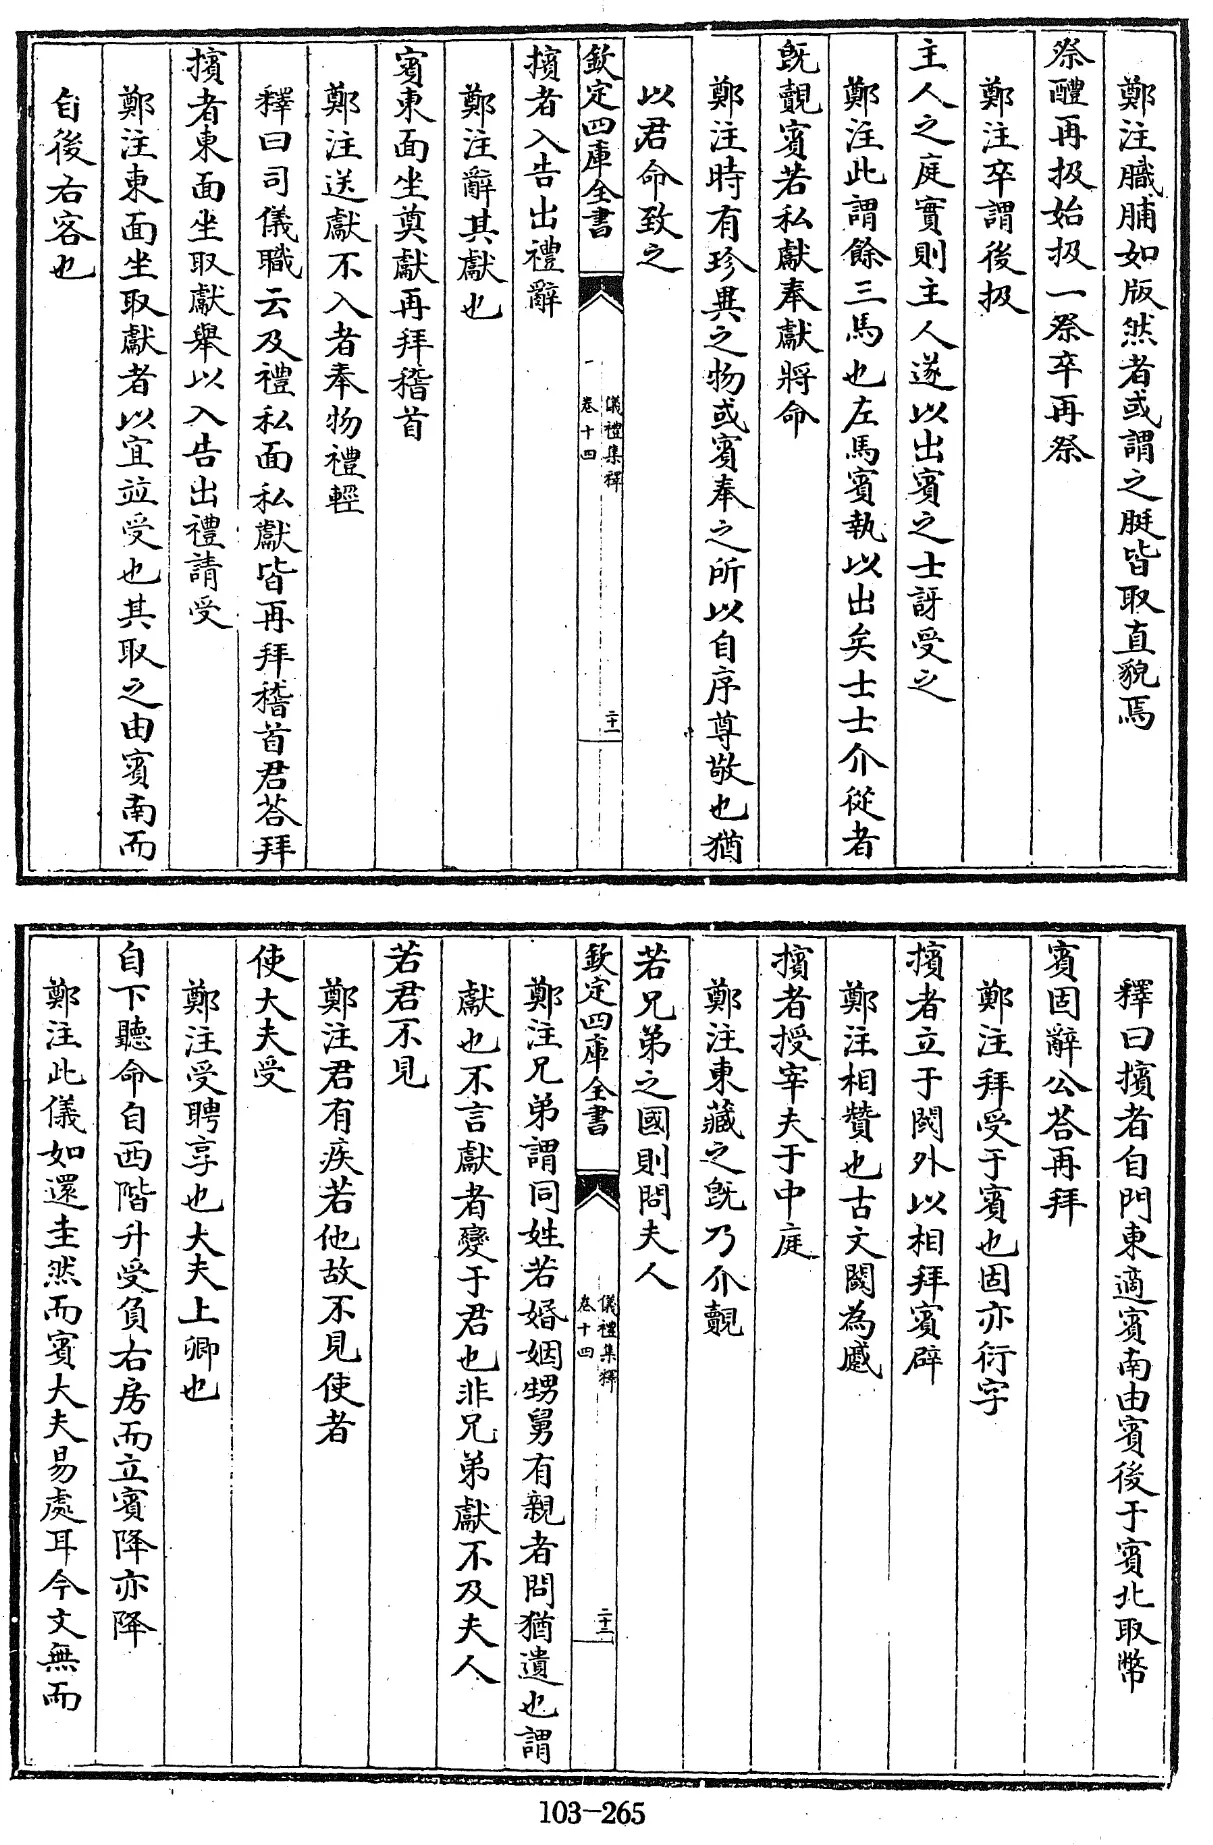 鄭注膱脯如版然者或謂之脡皆取直貌焉
祭醴再扱始扱一祭卒再祭
鄭注卒謂後扱
主人之庭實則主人遂以出賓之士訝受之
鄭注此謂餘三馬也左馬賓執以出矣士士介從者
既覿賓若私獻奉獻將命
鄭注時有珍異之物或賓奉之所以自序尊敬也猶
以君命致之
欽定四庫全書
儀禮集釋
卷十四
二十一
擯者入告出禮辭
鄭注辭其獻也
賓東面坐奠獻再拜稽首
鄭注送獻不入者奉物禮輕
釋曰司儀職云及禮私面私獻皆再拜稽首君荅拜
擯者東面坐取獻舉以入告出禮請受
鄭注東面坐取獻者以宜竝受也其取之由賓南而
自後右客也
釋曰擯者自門東適賓南由賓後于賓北取幣
賓固辭公荅再拜
鄭注拜受于賓也固亦衍字
擯者立于閾外以相拜賓辟
鄭注相贊也古文閾為蹙
擯者授宰夫于中庭
鄭注東藏之既乃介覿
若兄弟之國則問夫人
欽定四庫全書
儀禮集釋
卷十四
二十二
鄭注兄弟謂同姓若婚姻甥舅有親者問猶遺也謂
獻也不言獻者變于君也非兄弟獻不及夫人
若君不見
鄭注君有疾若他故不見使者
使大夫受
鄭注受聘享也大夫上卿也
自下聽命自西階升受負右房而立賓降亦降
鄭注此儀如還圭然而賓大夫易處耳今文無而
103-265